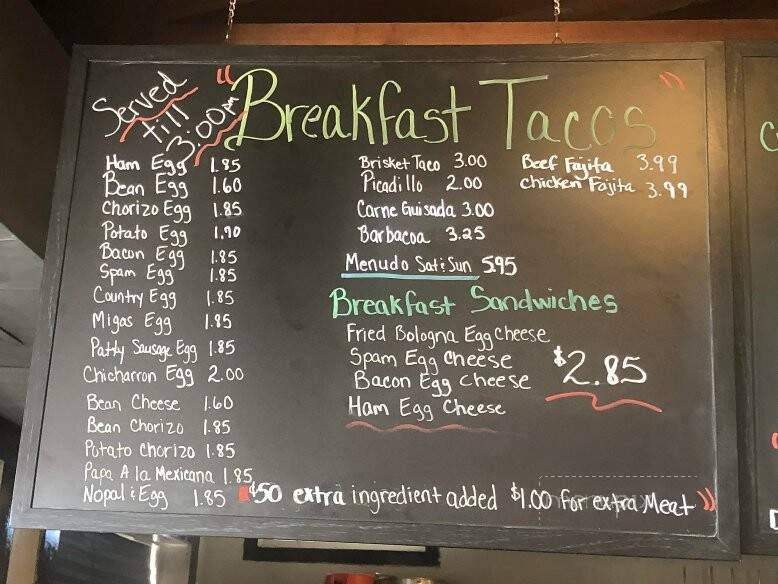 Served till 3:00pm
"Breakfast Tacos"
Ham Egg 1.85
Bean Egg 1.60
Chorizo Egg 1.85
Potato Egg 1.90
Bacon Egg 1.85
Spam Egg 1.85
Country Egg 1.85
Migas Egg 1.85
Patty Sausage Egg 1.85
Chicharron Egg 2.00
Bean Cheese 1.60
Bean Chorizo 1.85
Potato Chorizo 1.85
Papa A la Mexicana 1.85
Nopal & Egg 1.85
Brisket Taco 3.00
Picadillo 2.00
Carne Guisada 3.00
Barbacoa 3.25
Menudo Sat & Sun 5.95
Beef Fajita 3.99
chicken Fajita 3.99
Breakfast Sandwiches
Fried Bologna Egg Cheese
Spam Egg Cheese
Bacon Egg Cheese
Ham Egg Cheese
$2.85
$50 extra ingredient added $1.00 for extra Meat